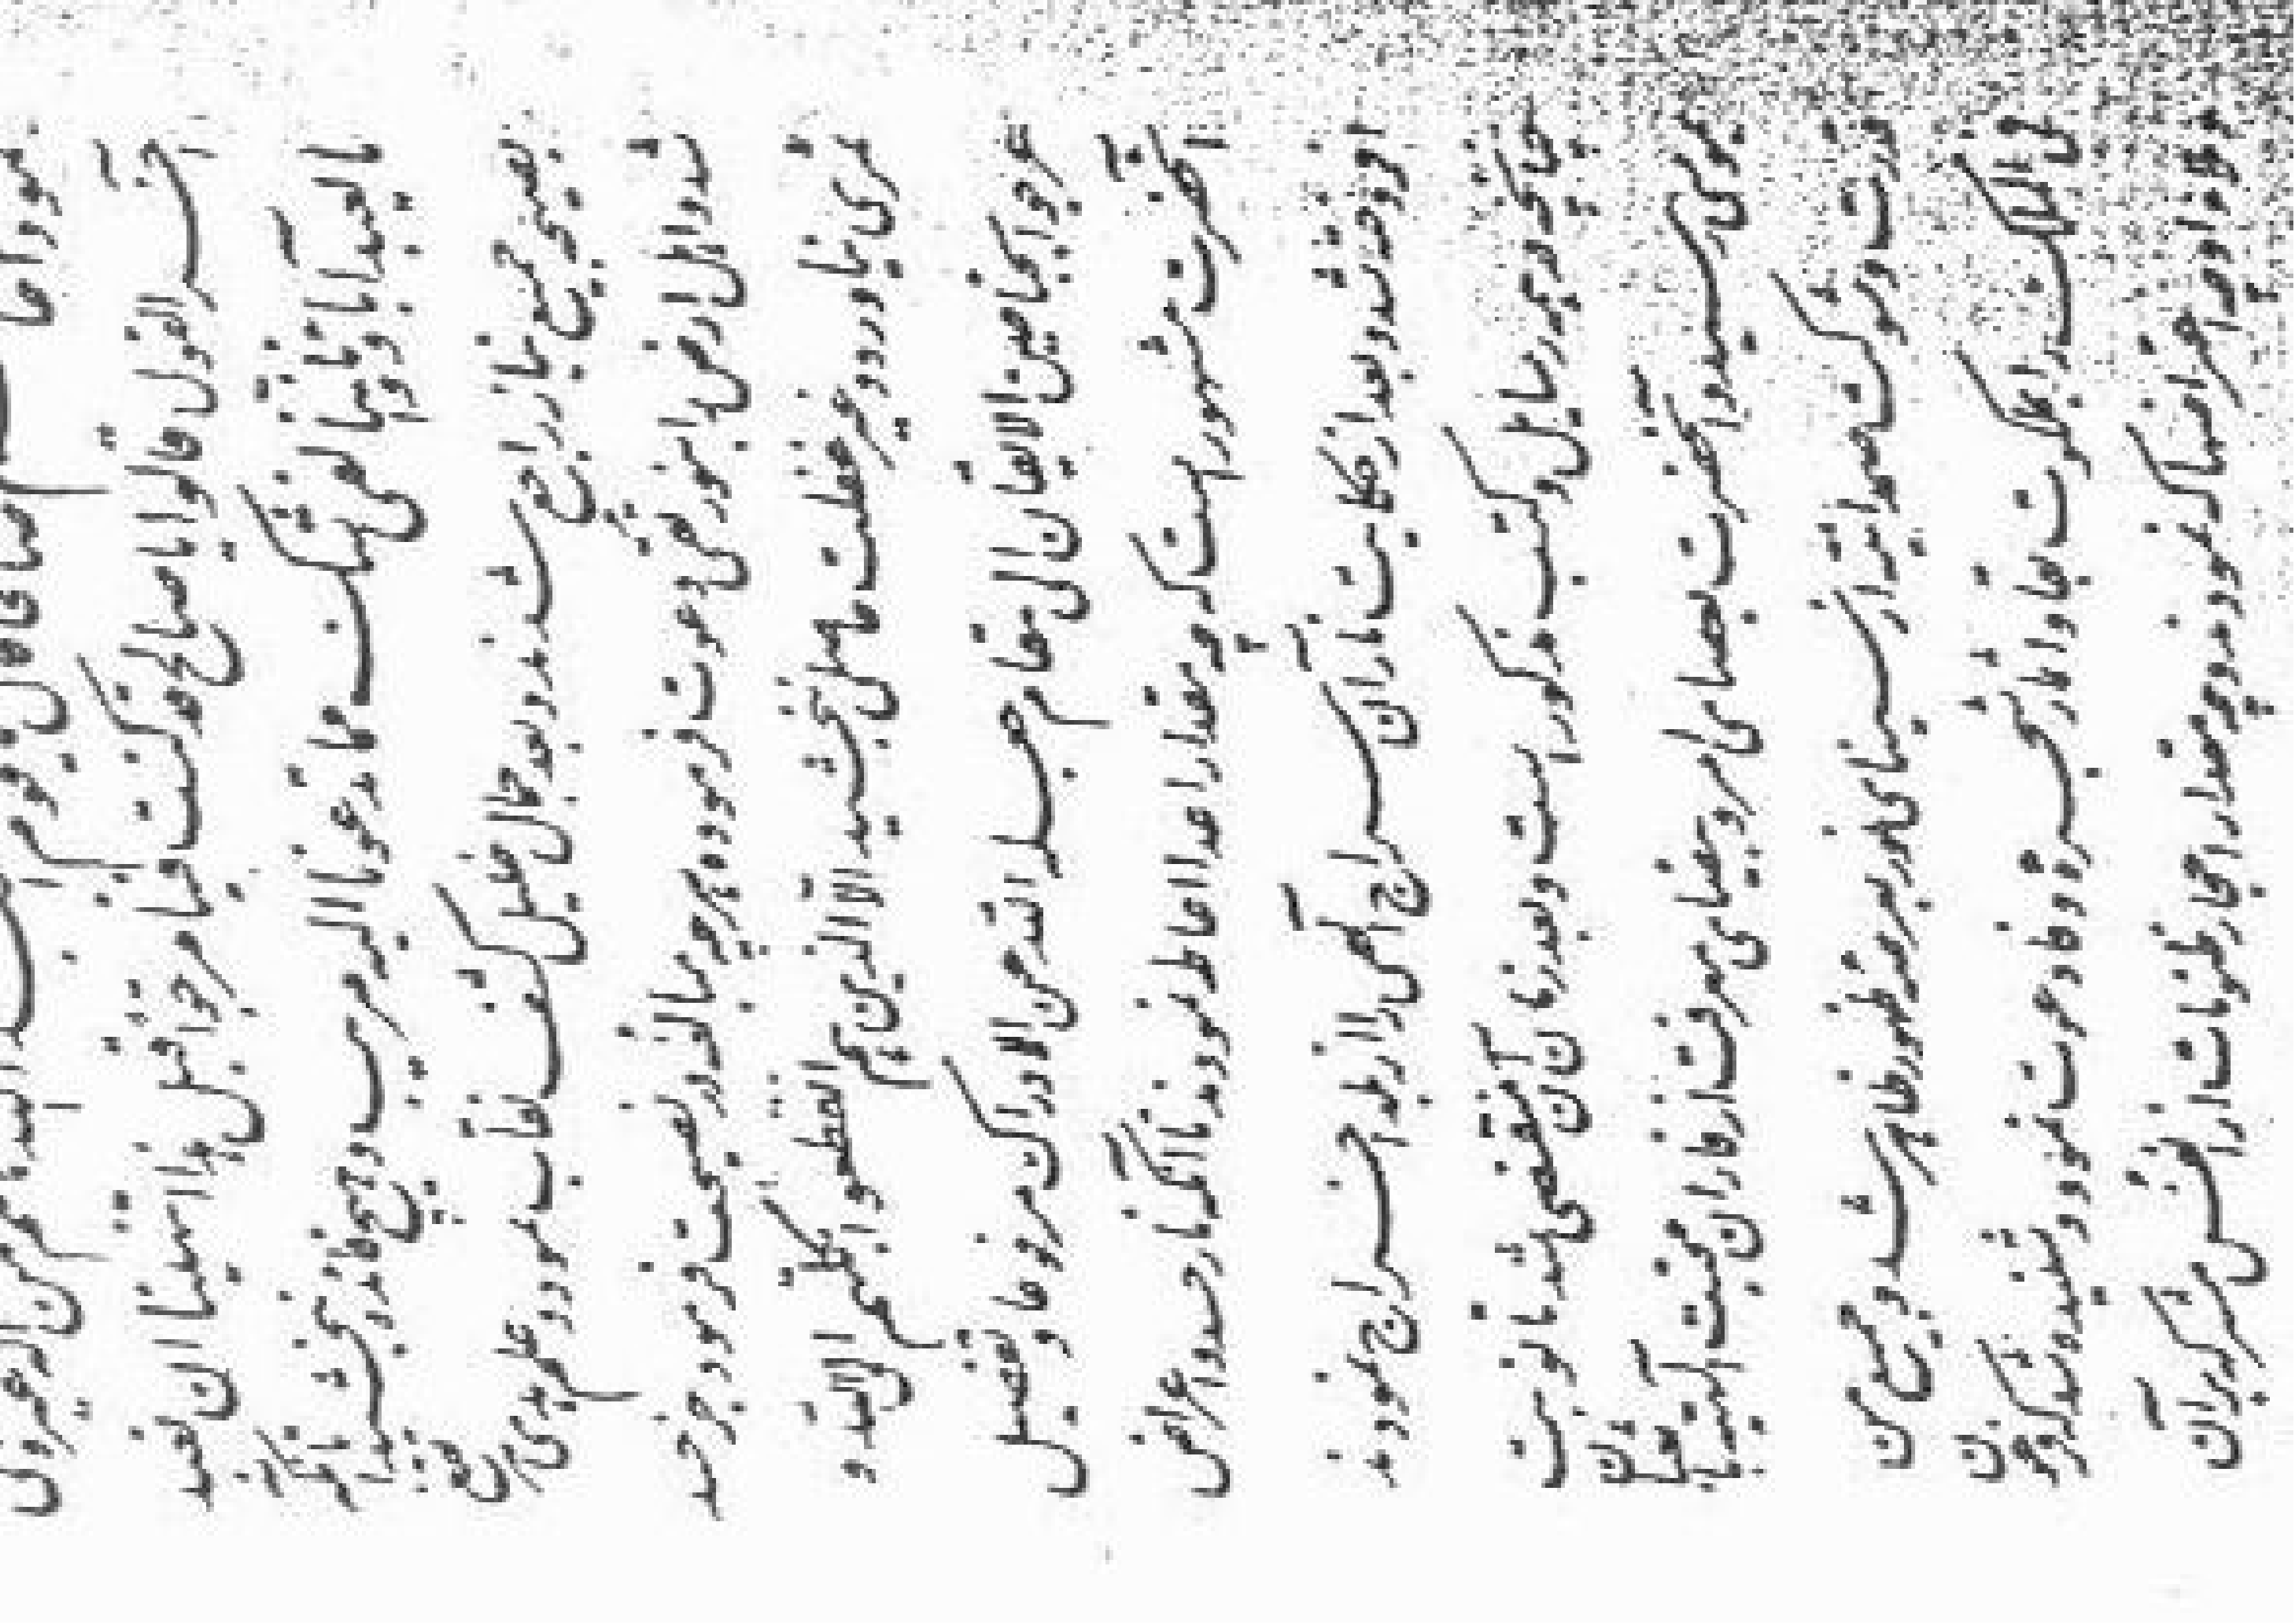 ثمود اخاهم صالحا قال يا قوم اعبدوا الله ما لكم من اله غيره الی
آخر القول قالوا يا صالح قد كنت فينا مرجوا قبل هذا اتنهينا ان نعبد
ما يعبد اباؤنا و اننا لفی شك مما تدعونا اليه مريب و هيچ فائده نبخشيد تا آنكه
بصيحهٔ جميع بنار راجع شدند و بعد جمال خليل كشف نقاب نمود و علم هدی مرتفع
شد و اهل ارض را بنور تقی دعوت فرموده هر چه مبالغه در نصيحت فرمود جز حسد
ثمری نياورد و غير غفلت حاصلی نبخشيد الا الذين هم انقطعوا بكلهم الی الله و
عرجوا بجناحين الايقان الی مقام جعله الله عن الادراك مرفوعا و تفصيل
آنحضرت مشهور است كه چه مقدار اعدا احاطه نمودند تا آنكه نار حسد و اعراض
افروخته شد و بعد از حكايت نار آن سراج الهی را از بلد اخراج نمودند
چنانچه در همه رسايل و كتب مذكور است و بعد زمان آن منقضی شد تا نوبت
بموسی رسيد و آنحضرت بعصای امر و بيضای معرفت از فاران محبت الهيه با ثعبان
قدرت و شوكت صمدانيه از سينای نور بعرصه ظهور ظاهر شد و جميع من
فی الملك را بملكوت بقا و اثمار شجره وفا دعوت نمود و شنيده شد كه فرعون
و ملا او چه اعتراضها كه نمودند و چه مقدار احجار ظنونات از انفس مشركه بر آن